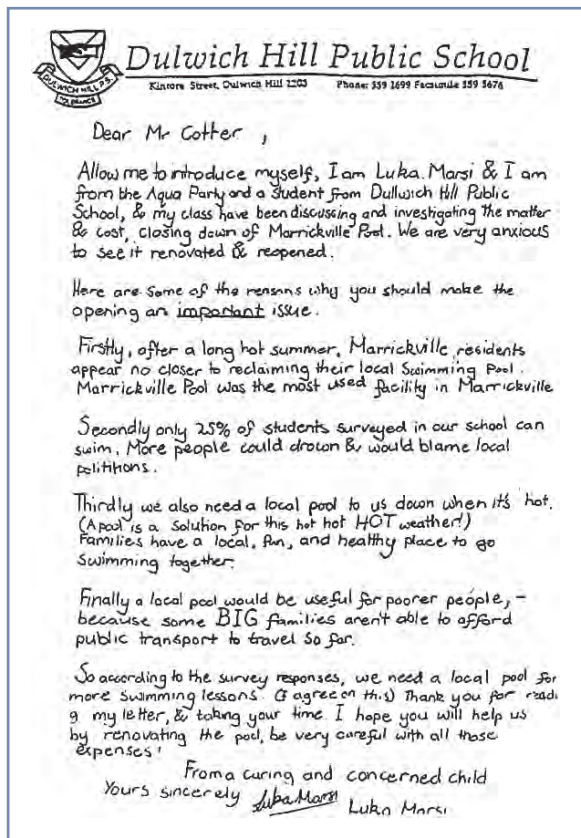 DULWICH HILL P.S.
TOLERANCE
Dulwich Hill Public School
Kintore Street, Dulwich Hill 2203 Phone: 559 2699 Facsimile 559 5676
Dear Mr Cotter ,
Allow me to introduce myself, I am Luka Marsi & I am
from the Aqua Party and a student from Dullwich Hill Public
School, & my class have been discussing and investigating the matter
& cost, closing down of Marrickville Pool. We are very anxious
to see it renovated & reopened.
Here are some of the reasons why you should make the
opening an important issue.
Firstly, after a long hot summer, Marrickville residents
appear no closer to reclaiming their local Swimming Pool.
Marrickville Pool was the most used facility in Marrickville
Secondly only 25% of students surveyed in our school can
swim. More people could drown & would blame local
polititions.
Thirdly we also need a local pool to us down when it's hot.
(A pool is a solution for this hot hot HOT weather!)
Families have a local, fun, and healthy place to go
Swimming together.
Finally a local pool would be useful for poorer people, -
because some BIG families aren't able to afford
public transport to travel so far.
So according to the survey responses, we need a local pool for
more swimming lessons. (I agree on this) Thank you for readi
g my letter, & taking your time. I hope you will help us
by renovating the pool, be very careful with all those
expenses!
From a curing and concerned child
Yours sincerely Luka Marsi Luka Marsi